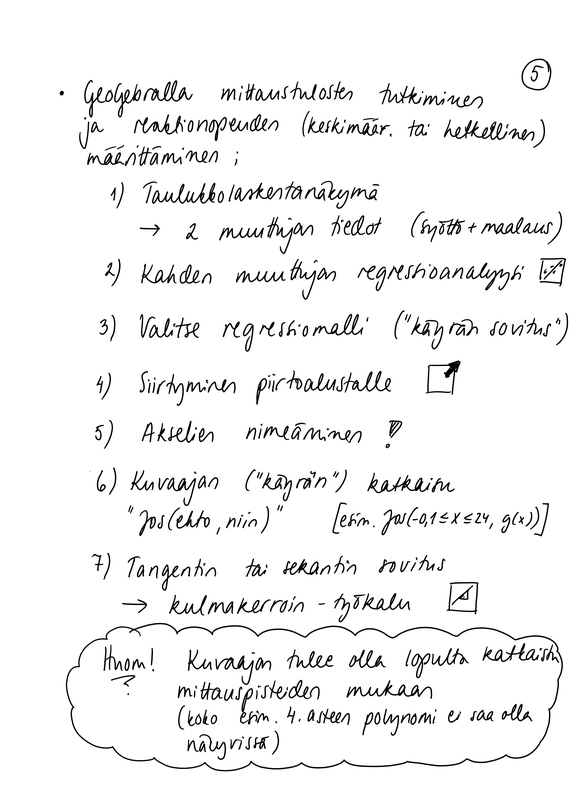 5
• GeoGebralla mittaustulosten tutkiminen
ja reaktionopeuden (keskimäär. tai hetkellinen)
määrittäminen ;
1) Taulukkolaskentanäkymä
→ 2 muuttujan tiedot (syöttö + maalaus)
2) Kahden muuttujan regressioanalyysi
3) Valitse regressiomalli ("käyrän sovitus")
4) Siirtyminen piirtoalustalle
5) Akselien nimeäminen !
6) Kuvaajan ("käyrän") katkaisu
"Jos(ehto, niin)" [esim. Jos(-0,1 ≤ x ≤ 24, g(x))]
7) Tangentin tai sekantin sovitus
→ kulmakerroin - työkalu
Huom! Kuvaajan tulee olla lopulta katkaistu
mittauspisteiden mukaan
(koko esim. 4. asteen polynomi ei saa olla
näkyvissä)